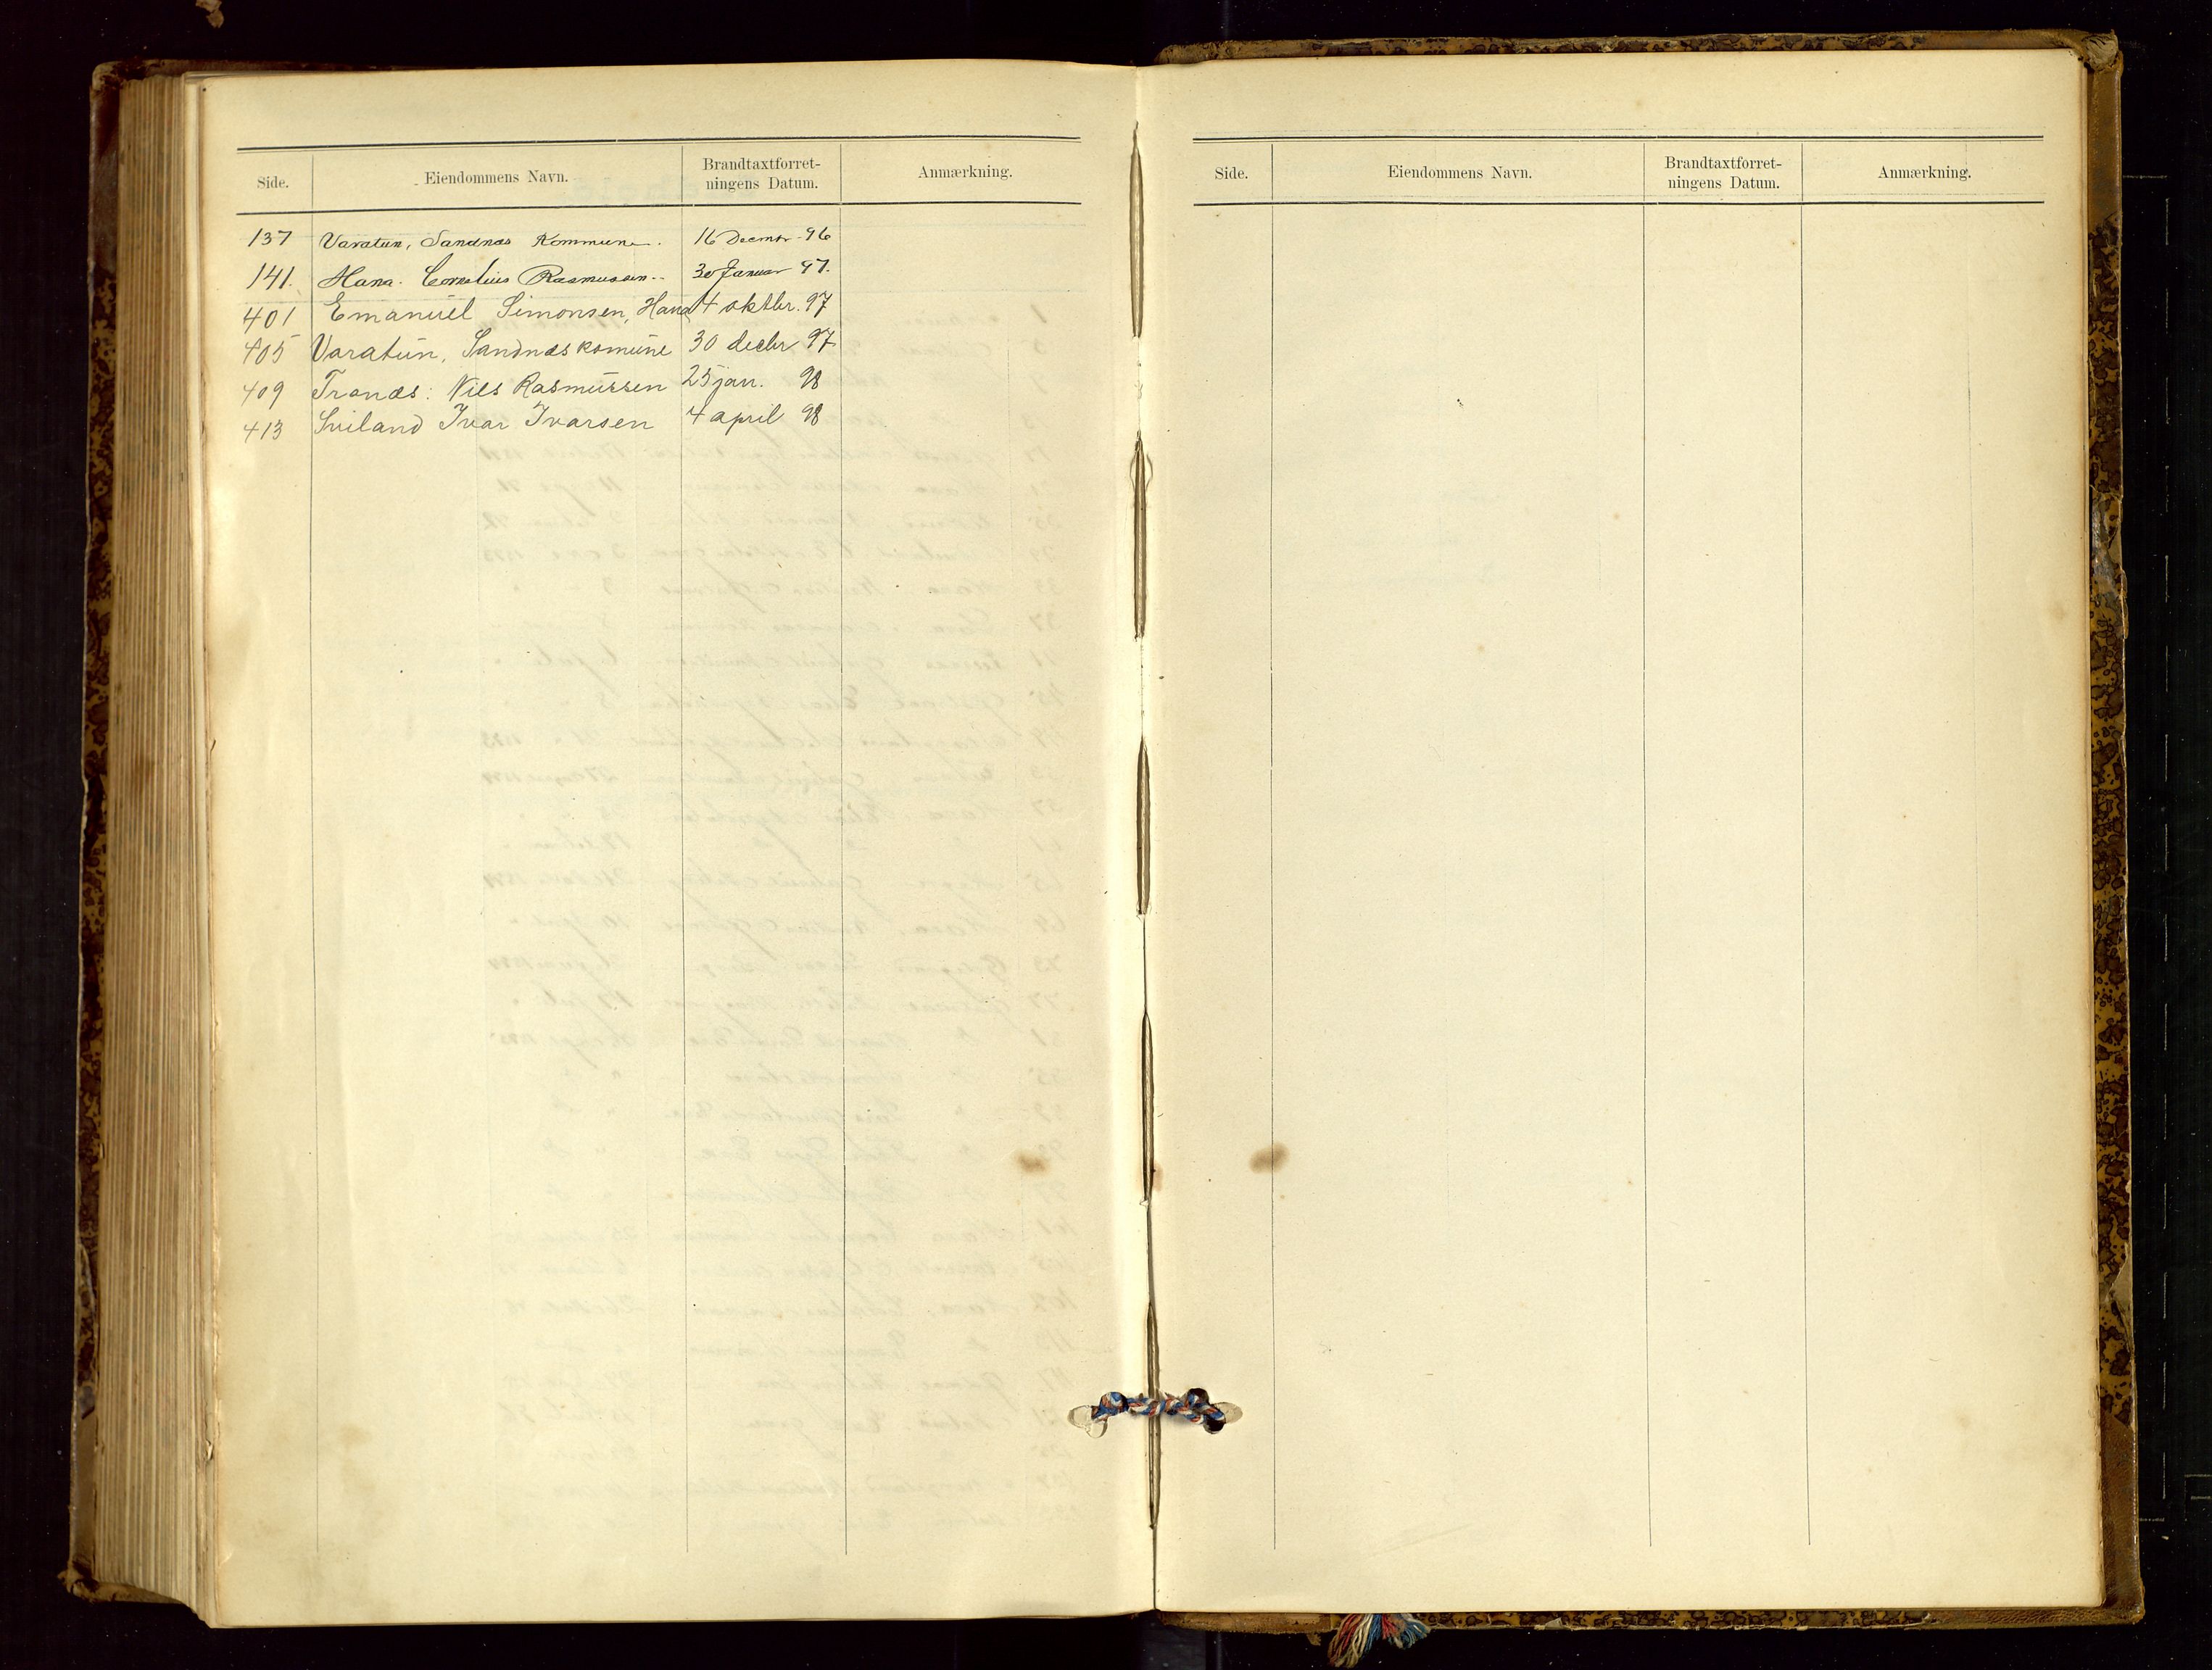 Side. Eiendommens Navn. Brandtaxtforret-
ningens Datum. Anmærkning.
137 Varatun, Sandnæs Kommune. 16 Decmbr 96
141. Hana. Cornelius Rasmussen. 30 Januar 97.
401 Emanuel Simonsen, Hana 4 oktbr. 97
405 Varatun, Sandnæs komune 30 decbr 97
409 Tronæs: Nils Rasmussen 25 jan. 98
413 Sviland Ivar Ivarsen 4 april 98
Side. Eiendommens Navn. Brandtaxtforret-
ningens Datum. Anmærkning.